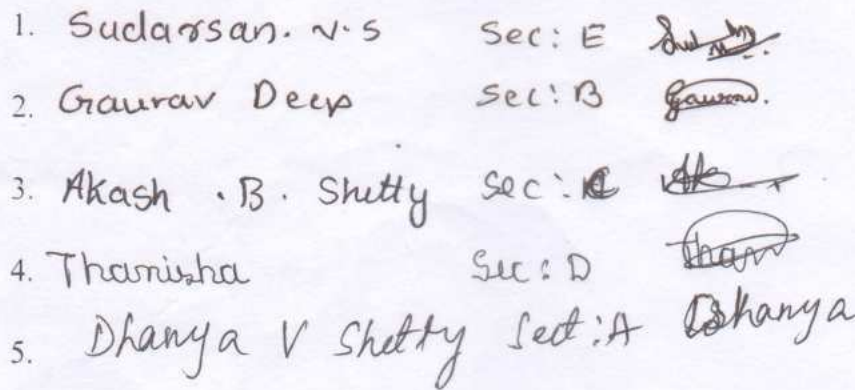 1. Sudarsan. N.S Sec: E
2. Gaurav Deep Sec: B Gaurav.
3. Akash .B. Shetty Sec: C
4. Thanisha Sec: D Than
5. Dhanya V Shetty Sect: A Dhanya